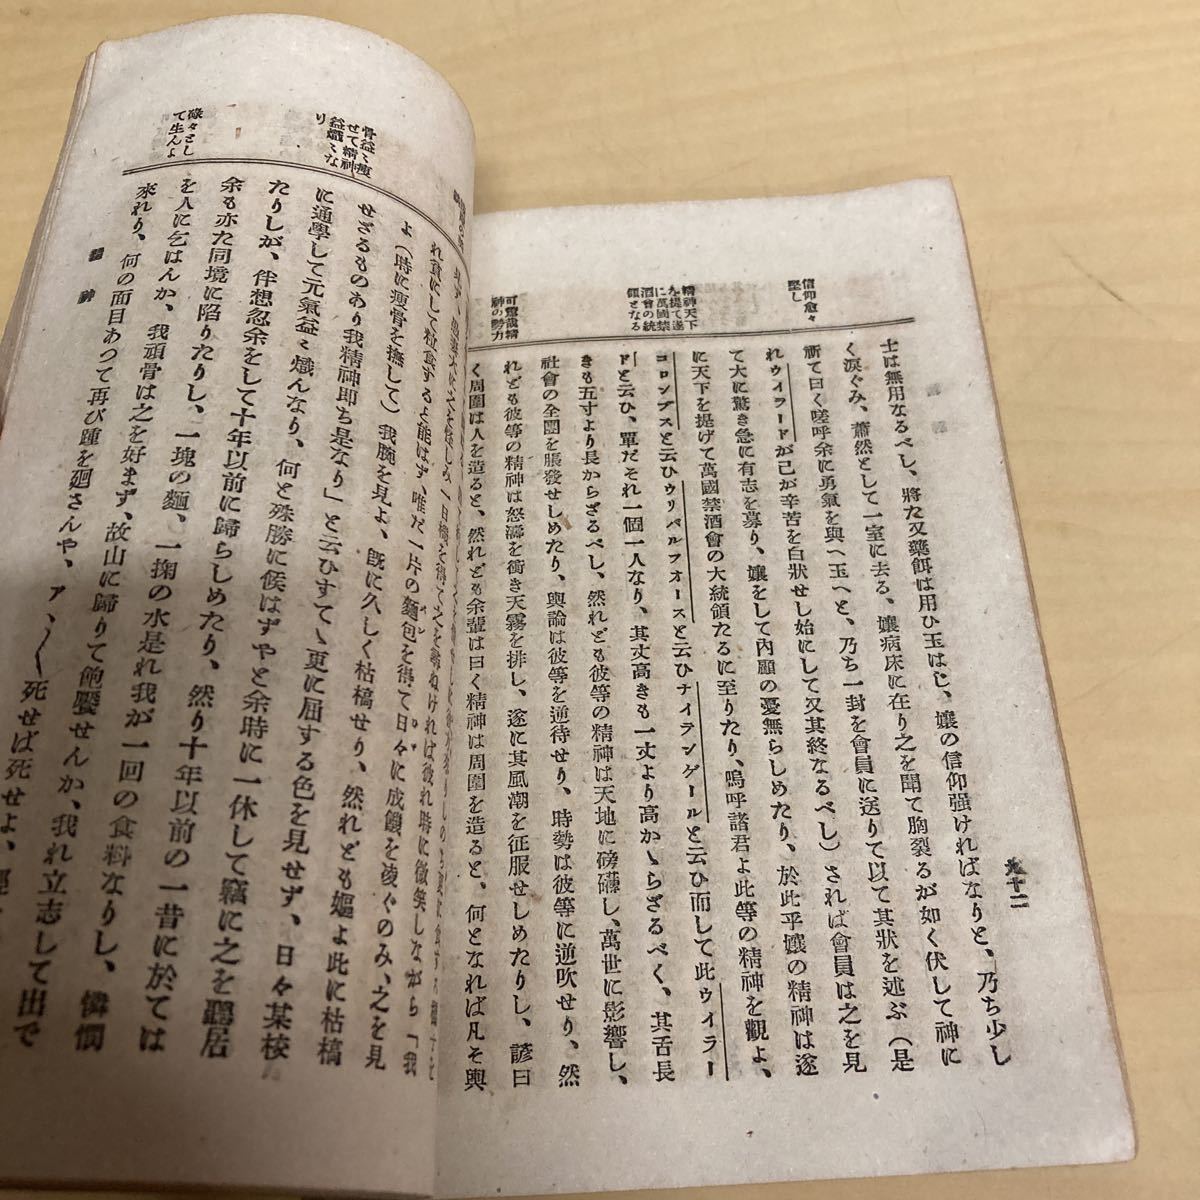 九十二
信仰愈々
堅し
精神天下
を提て遂
に萬國禁
酒會の統
領となる
可驚哉精
神の勢力
士は無用なるべし、將た又藥餌は用ひ玉はじ、孃の信仰强ければなりと、乃ち少し
く涙ぐみ、蕭然として一室に去る、孃病床に在り之を聞て胸裂るが如く伏して神に
祈て曰く嗟呼余に勇氣を與へ玉へと、乃ち一封を會員に送りて以て其狀を述ぶ（是
れウイラードが己が辛苦を白狀せし始にして又其終なるべし）されば會員は之を見
て大に驚き急に有志を募り、孃をして內顧の憂無らしめたり、於此乎孃の精神は遂
に天下を提げて萬國禁酒會の大統領たるに至りたり、嗚呼諸君よ此等の精神を觀よ、
コロンブスと云ひウリバルフオースと云ひナイランゲールと云ひ而して此ウイラー
ドと云ひ、單だそれ一個一人なり、其丈高きも一丈より高かゝらざるべく、其舌長
きも五寸より長からざるべし、然れども彼等の精神は天地に磅礴し、萬世に影響し、
社會の全圈を脹發せしめたり、輿論は彼等を逆待せり、時勢は彼等に逆吹せり、然
れども彼等の精神は怒濤を衝き天霧を排し、遂に其風潮を征服せしめたりし、諺曰
く周圍は人を造ると、然れども余輩は曰く精神は周圍を造ると、何となれば凡そ輿
骨益々瘦
せて精神
益熾んな
り
碌々とし
て生んよ
れ貧にして粒食すると能はず、唯だ一片の麵包を得て日々に成饑を凌ぐのみ、之を見
よ（時に瘦骨を撫して）我腕を見よ、旣に久しく枯槁せり、然れども嫗よ此に枯槁
せざるものあり我精神卽ち是なり」と云ひすてゝ更に屈する色を見せず、日々某校
に通學して元氣益々熾んなり、何と殊勝に候はずやと余時に一休して竊に之を聽居
たりしが、伴想忽余をして十年以前に歸らしめたり、然り十年以前の一昔に於ては
余も亦た同境に陷りたりし、一塊の麵、一掬の水是れ我が一回の食料なりし、憐憫
を人に乞はんか、我頑骨は之を好まず、故山に歸りて飽饜せんか、我れ立志して出で
來れり、何の面目あつて再び踵を廻さんや、アゝ〳〵死せば死せよ、
精神